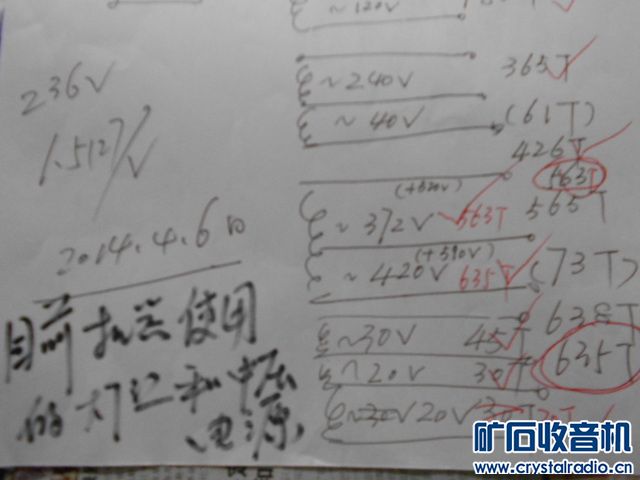 ~120V
~240V 365T
~40V (61T)
426T
236V
1.512T/V
(+520V) 563T
~372V 563T 565T
2014.4.6日
(+590V)
~420V 635T (73T)
638T
~30V 45T 635T
~20V 30T
~30V 20V 30T 20T
目前
使用
的灯
和
电源
矿石收音机
www.crystalradio.cn